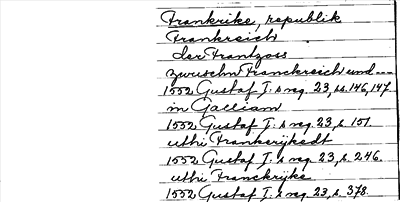 Frankrike, republik
Frankreich
der Frantzoss
zwuschn Franckreich und ----
1552 Gustaf I:s reg. 23, ss. 146, 147.
in Galliam
1552 Gustaf I:s reg. 23, s. 151.
uthi Frankerijkedt
1552 Gustaf I:s reg. 23, s. 246.
uthi Franckrijke
1552 Gustaf I:s reg. 23, s. 378.